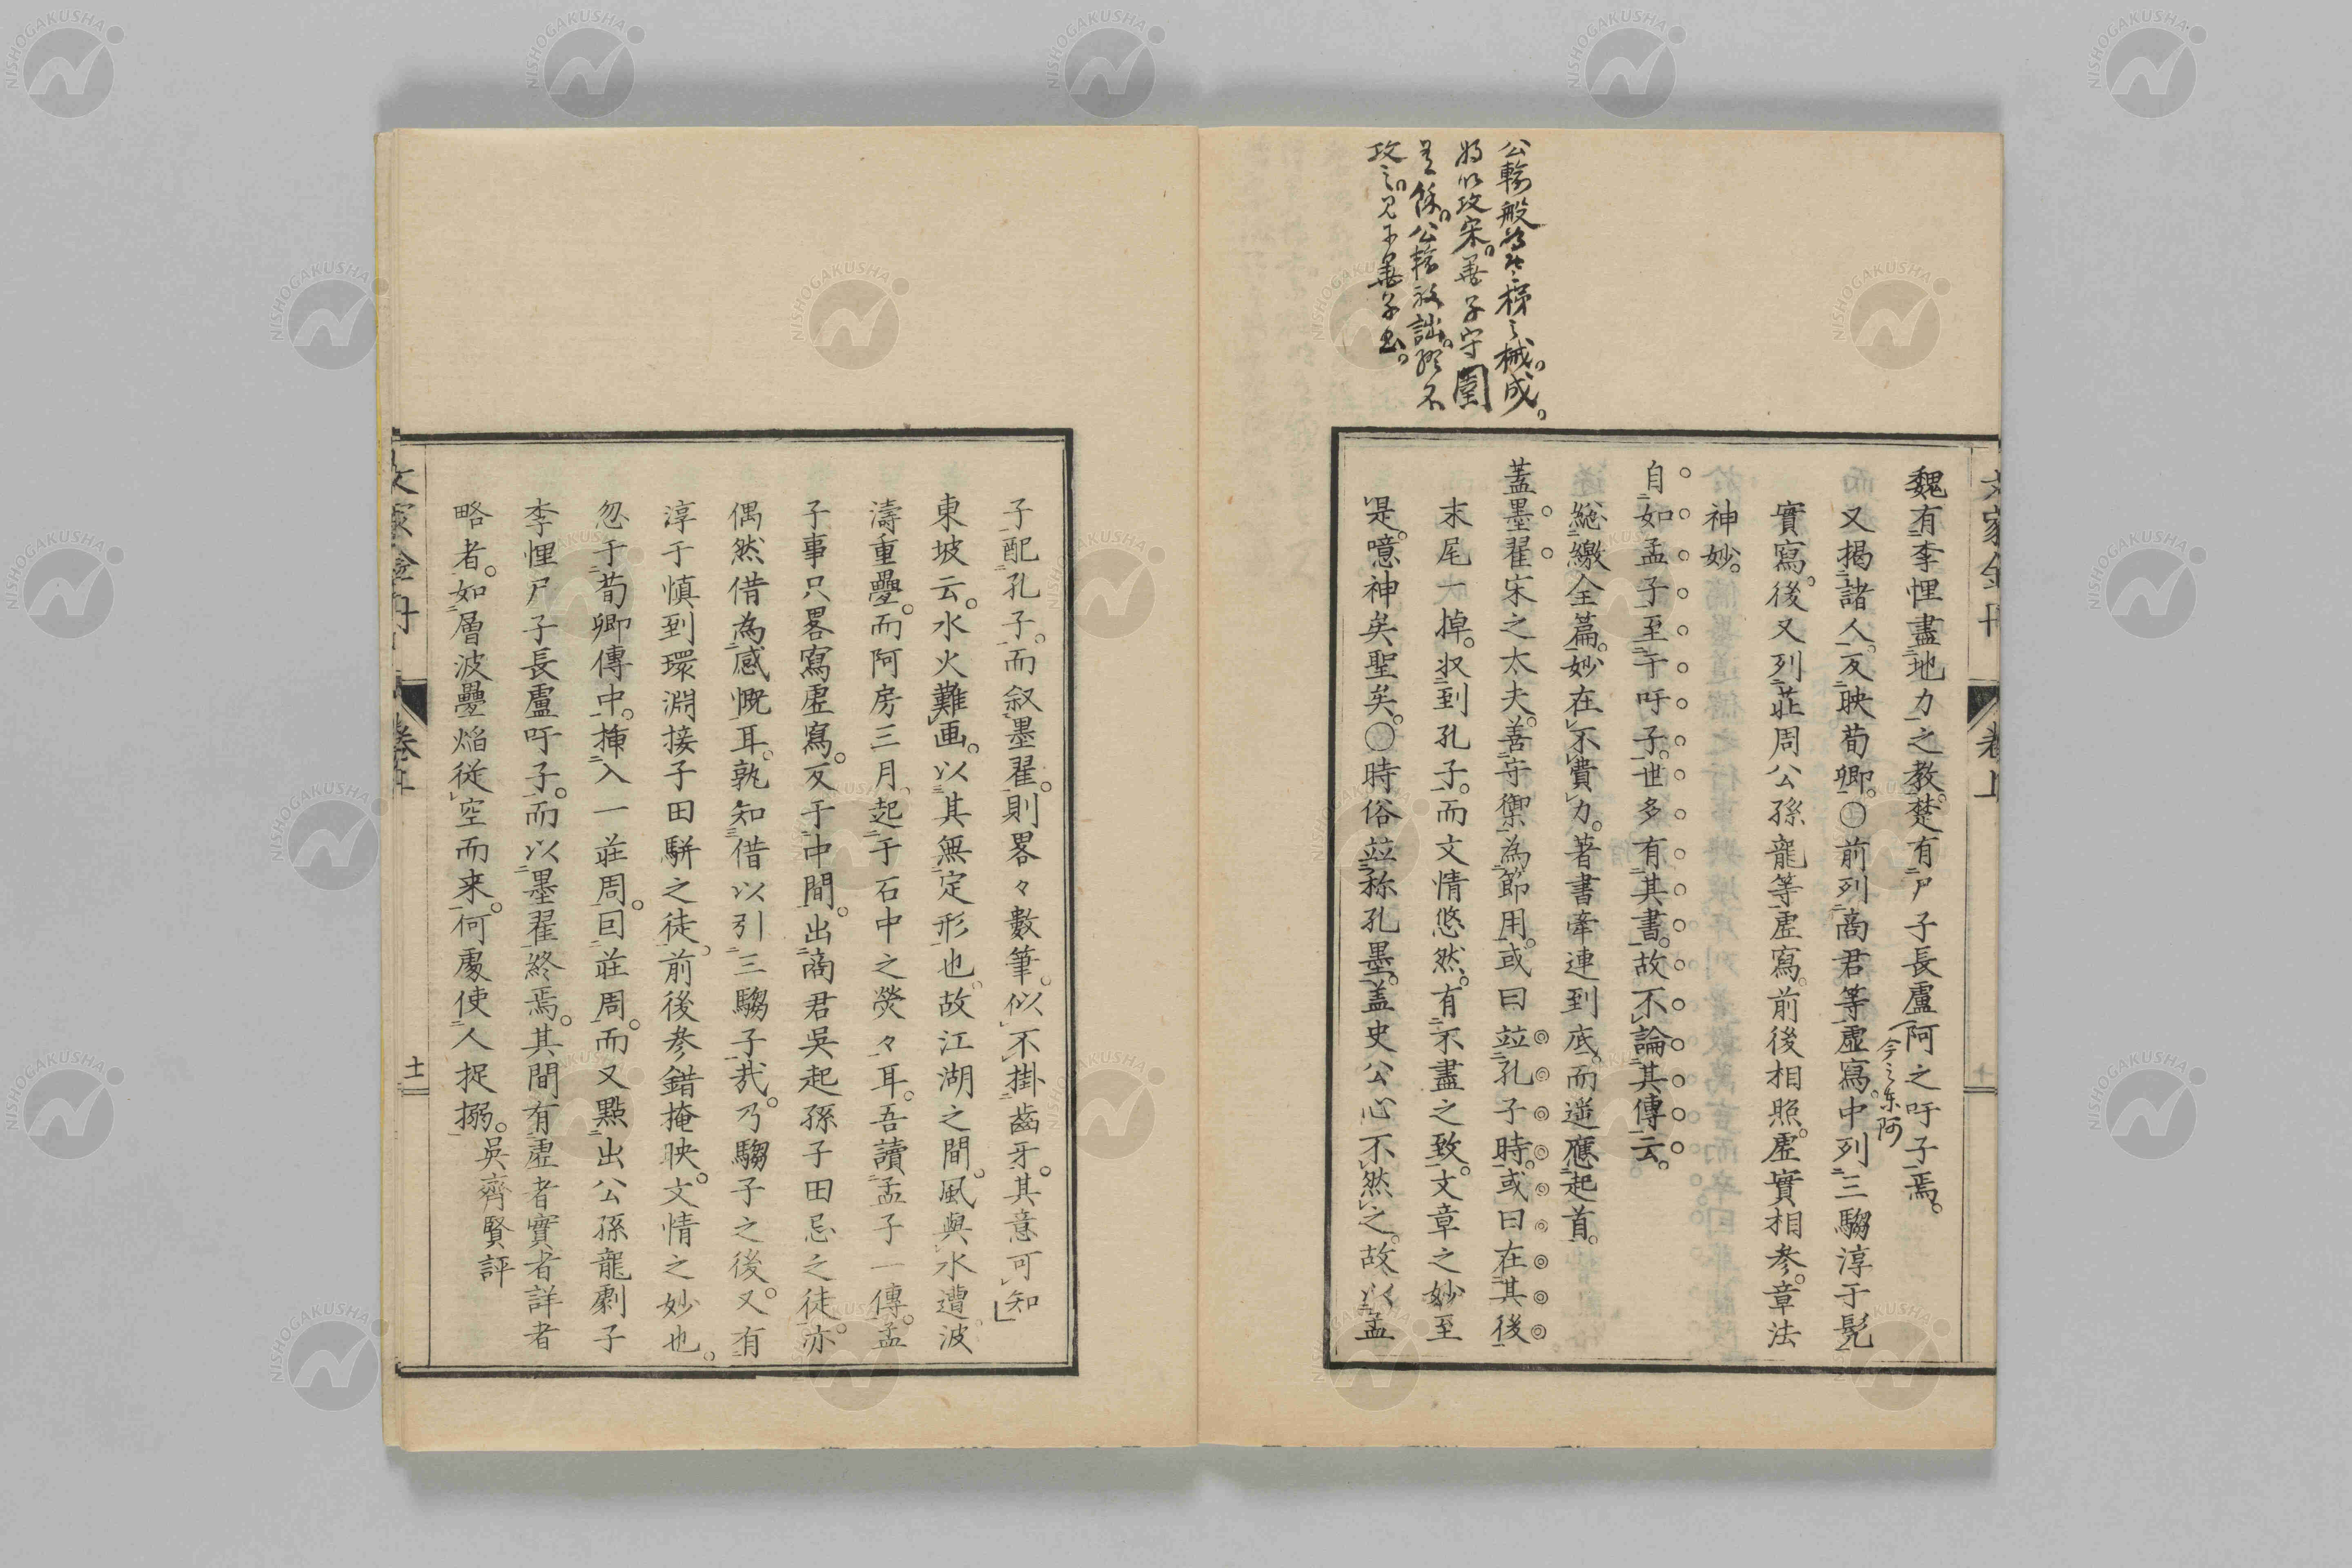 公輸般為雲梯之械。成。
将以攻宋。墨子守圉
有餘。公輸般詘。終不
攻之。見于墨子書。
魏有李悝盡地力之教。楚有尸子長盧阿之吁子焉。
今之東阿
又揭諸人。反映荀卿。〇前列商君等虚寫。中列三騶淳于髠
實寫。後又列莊周公孫龍等虚寫。前後相照。虚實相參。章法
神妙。
自如孟子至于吁子。世多有其書。故不論其傳云。
總繳全篇。妙在不費力。著書牽連到底。而遥應起首。
蓋墨翟宋之大夫。善守禦。為節用。或曰竝孔子時。或曰在其後
末尾一掉。収到孔子。而文情悠然。有不盡之致。文章之妙至
是。噫神矣聖矣。〇時俗竝称孔墨。盖史公心不然之。故以孟
子配孔子。而叙墨翟。則畧々數筆。似不掛齒牙。其意可知
東坡云。水火難画。以其無定形也。故江湖之間。風與水遭。波
濤重疊。而阿房三月。起于石中之熒々耳。吾讀孟子一傳。孟
子事只畧寫虚寫。反于中間。出商君吳起孫子田忌之徒。亦
偶然借為感慨耳。孰知借以引三騶子㢤。乃騶子之後。又有
淳于慎到環淵接子田駢之徒。前後參錯掩映。文情之妙也。
忽于荀卿傳中。挿入一莊周。囘莊周。而又點出公孫龍劇子
李悝尸子長盧吁子。而以墨翟終焉。其間有虚者實者詳者
略者。如層波疊焰従空而来。何處使人捉搦。
吳齊賢評
十一